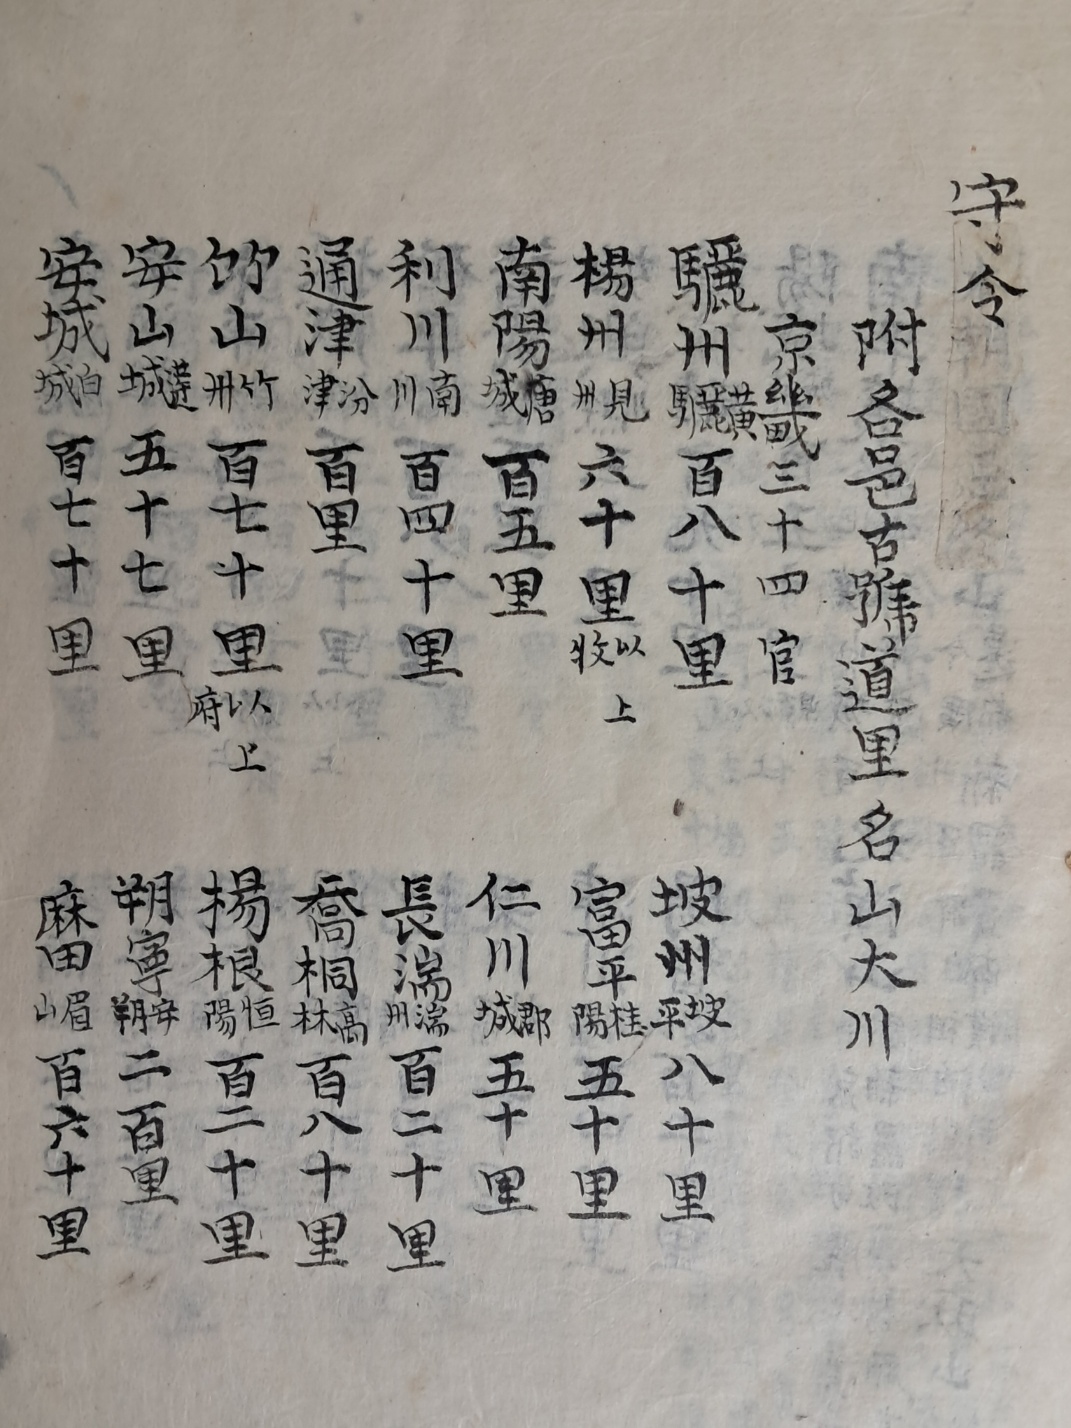 守令
附各邑古號道里名山大川
京畿三十四官
驪州黃驪百八十里
坡州坡平八十里
楊州見州六十里以上牧
富平桂陽五十里
南陽唐城百五里
仁川郡城五十里
利川南川百四十里
長湍湍州百二十里
通津汾津百里
喬桐高林百八十里
竹山竹州百七十里以上府
楊根恒陽百二十里
安山蓮城五十七里
朔寧安朔二百里
安城白城百七十里
麻田眉山百六十里